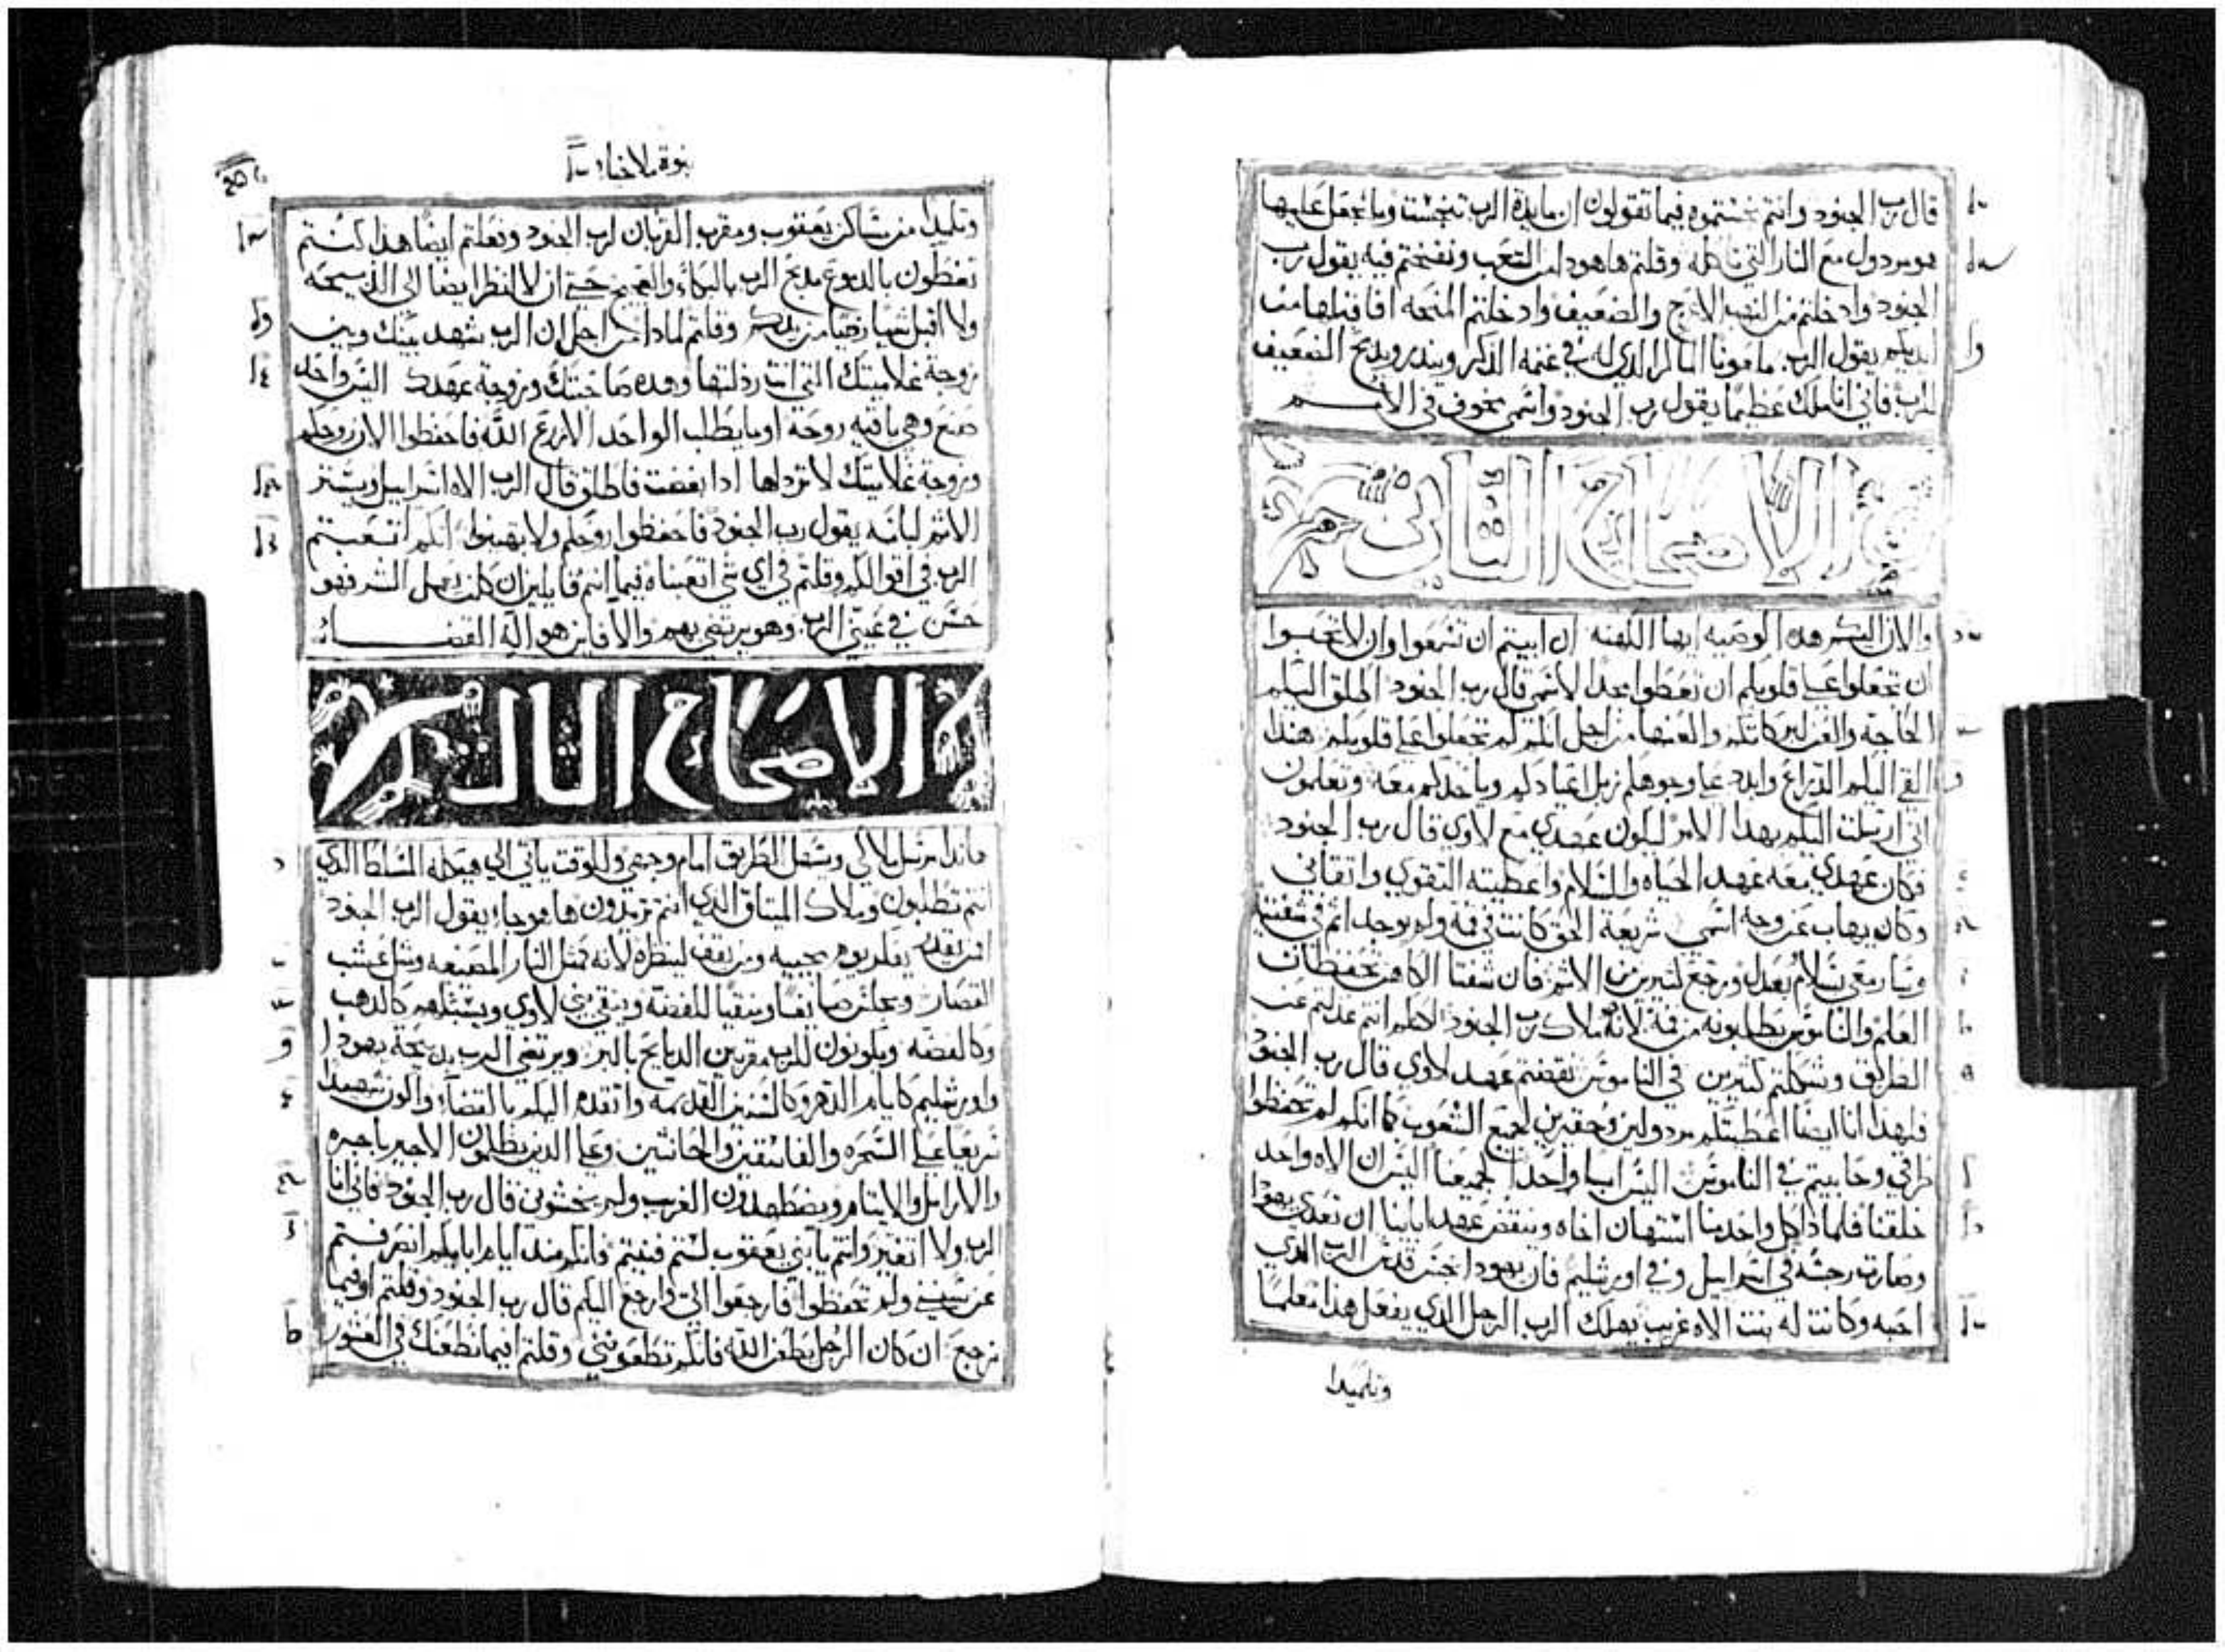 قال رب الجنود وانتم نجستموه فيما تقولون ان مايدة الرب تنجست وما يجعل عليها
مع النار التي تاكله وقلتم هاهودا من التعب ونفختم فيه يقول رب
الجنود وادخلتم من النهب الاعرج والضعيف وادخلتم المنحه افاقبلها من
ايديكم يقول الرب الماكر الذي له في غنمه الذكر وينذر ويذبح الضعيف
للرب فاني انا ملك عظيما يقول رب الجنود واسمي مخوف في الامم
الاصحاح الثاني
والان اليكم هذه الوصيه ايها الكهنه ان ابيتم ان تسمعوا وان لا تحبوا
ان تجعلوا على قلوبكم ان تعطوا مجدا لاسمي قال رب الجنود اطلق اليكم
الحاجة والعن بركاتكم والعنها من اجل انكم لم تجعلوا على قلوبكم هندا
القي اليكم الذراع وابدد على وجوهكم زبل اعيادكم وياخذكم معه وتعلمون
اني ارسلت اليكم بهذا الامر ليكون عهدي مع لاوي قال رب الجنود
فكان عهدي معه عهد الحياه والسلام واعطيته التقوي واتقاني
وكان يهاب عن وجه اسمي شريعة الحق كانت في فمه ولم يوجد اثم في شفتيه
وسار معي بسلام بعدل ورجع لكثيرين من الاثم فان شفتا الكاهن تحفظان
العلم والناموس يطلبونه من فمه لانه ملاك رب الجنود لاكلم انتم عدلتم عن
الطريق وشككتم كثيرين في الناموس نقضتم عهد لاوي قال رب الجنود
فلهذا انا ايضا اعطيتكم مردولين وحقيرين لجميع الشعوب كما انكم لم تحفظوا
طرقي وحابيتم في الناموس اليس ابا واحدا لجميعنا اليس ان الاه واحد
خلقنا فلماذا كل واحد منا استهان اخاه وينقض عهد ابائنا ان تعدي يهودا
وصارت رجسه في اسراييل وفي اورشليم فان يهودا نجس قدس الرب الذي
احبه وكانت له بنت الاه غريب يهلك الرب الرجل الذي يفعل هذا معلما
وتلميدا
نبوة ملاخيا
وتلميدا من مساكن يعقوب ومقرب القربان لرب الجنود وفعلتم ايضا هذا كنتم
تغطون بالدموع مذبح الرب بالبكاء والعجيج حتي ان لا انظر ايضا الى الذبيحه
ولا اقبل شيا رضيا من يدكم وقلتم لماذا من اجل ان الرب شهد بينك وبين
زوجة غلاميتك التي انت رذلتها وهده صاحبتك وزوجة عهدك اليس واحد
صنع وهي باقيه روحه او ما يطلب الواحد الا زرع الله فاحفظوا الان روحكم
وزوجة غلاميتك لا تردلها ادا ابغضت فاطلق قال الرب الاه اسراييل ويستر
الاثم لباسه يقول رب الجنود فاحفظوا روحكم ولا تهينوا انكم اتعبتم
الرب في اقوالكم وقلتم في اي شي اتعبناه فيما انتم قايلين ان كل من يعمل الشر فهو
حسن في عيني الرب وهو يرتضي بهم والا فاين هو اله القضاء
الاصحاح الثالث
هاندا مرسل ملاكي ويسهل الطريق امام وجهي وللوقت ياتي الي هيكله السلطا الذي
انتم تطلبون وملاك الميثاق الذي انتم تريدون ها هو جاء يقول الرب الجنود
من يقدر يفكر يوم مجييه ومن يقف لينظره لانه كمثل النار المصنعه ومثل عشب
القصارين ويجلس صايغا ومنقيا للفضة وينقي بني لاوي ويسبكهم كالدهب
وكالفضه ويكونون للرب مقربين الدبايح بالبر ويرتضي الرب بدبيحة يهودا
واورشليم كايام الدهر وكالسنين القديمه واتقدم اليكم بالقضاء واكون شهيدا
سريعا على السحره والفاسقين والحانثين وعلى الذين يظلمون الاجير باجره
والارامل والايتام ويضطهدون الغريب ولم يخشوني قال رب الجنود فاني انا
الرب ولا اتغير وانتم يا بني يعقوب لستم فنيتم فانكم مند ايام ابايكم انصرفتم
عن سنني ولم تحفظوا فارجعوا الي وارجع اليكم قال رب الجنود وقلتم او فيما
نرجع ان كان الرجل يطعن الله فانكم تطعنوني وقلتم فيما نطعنك في العشور